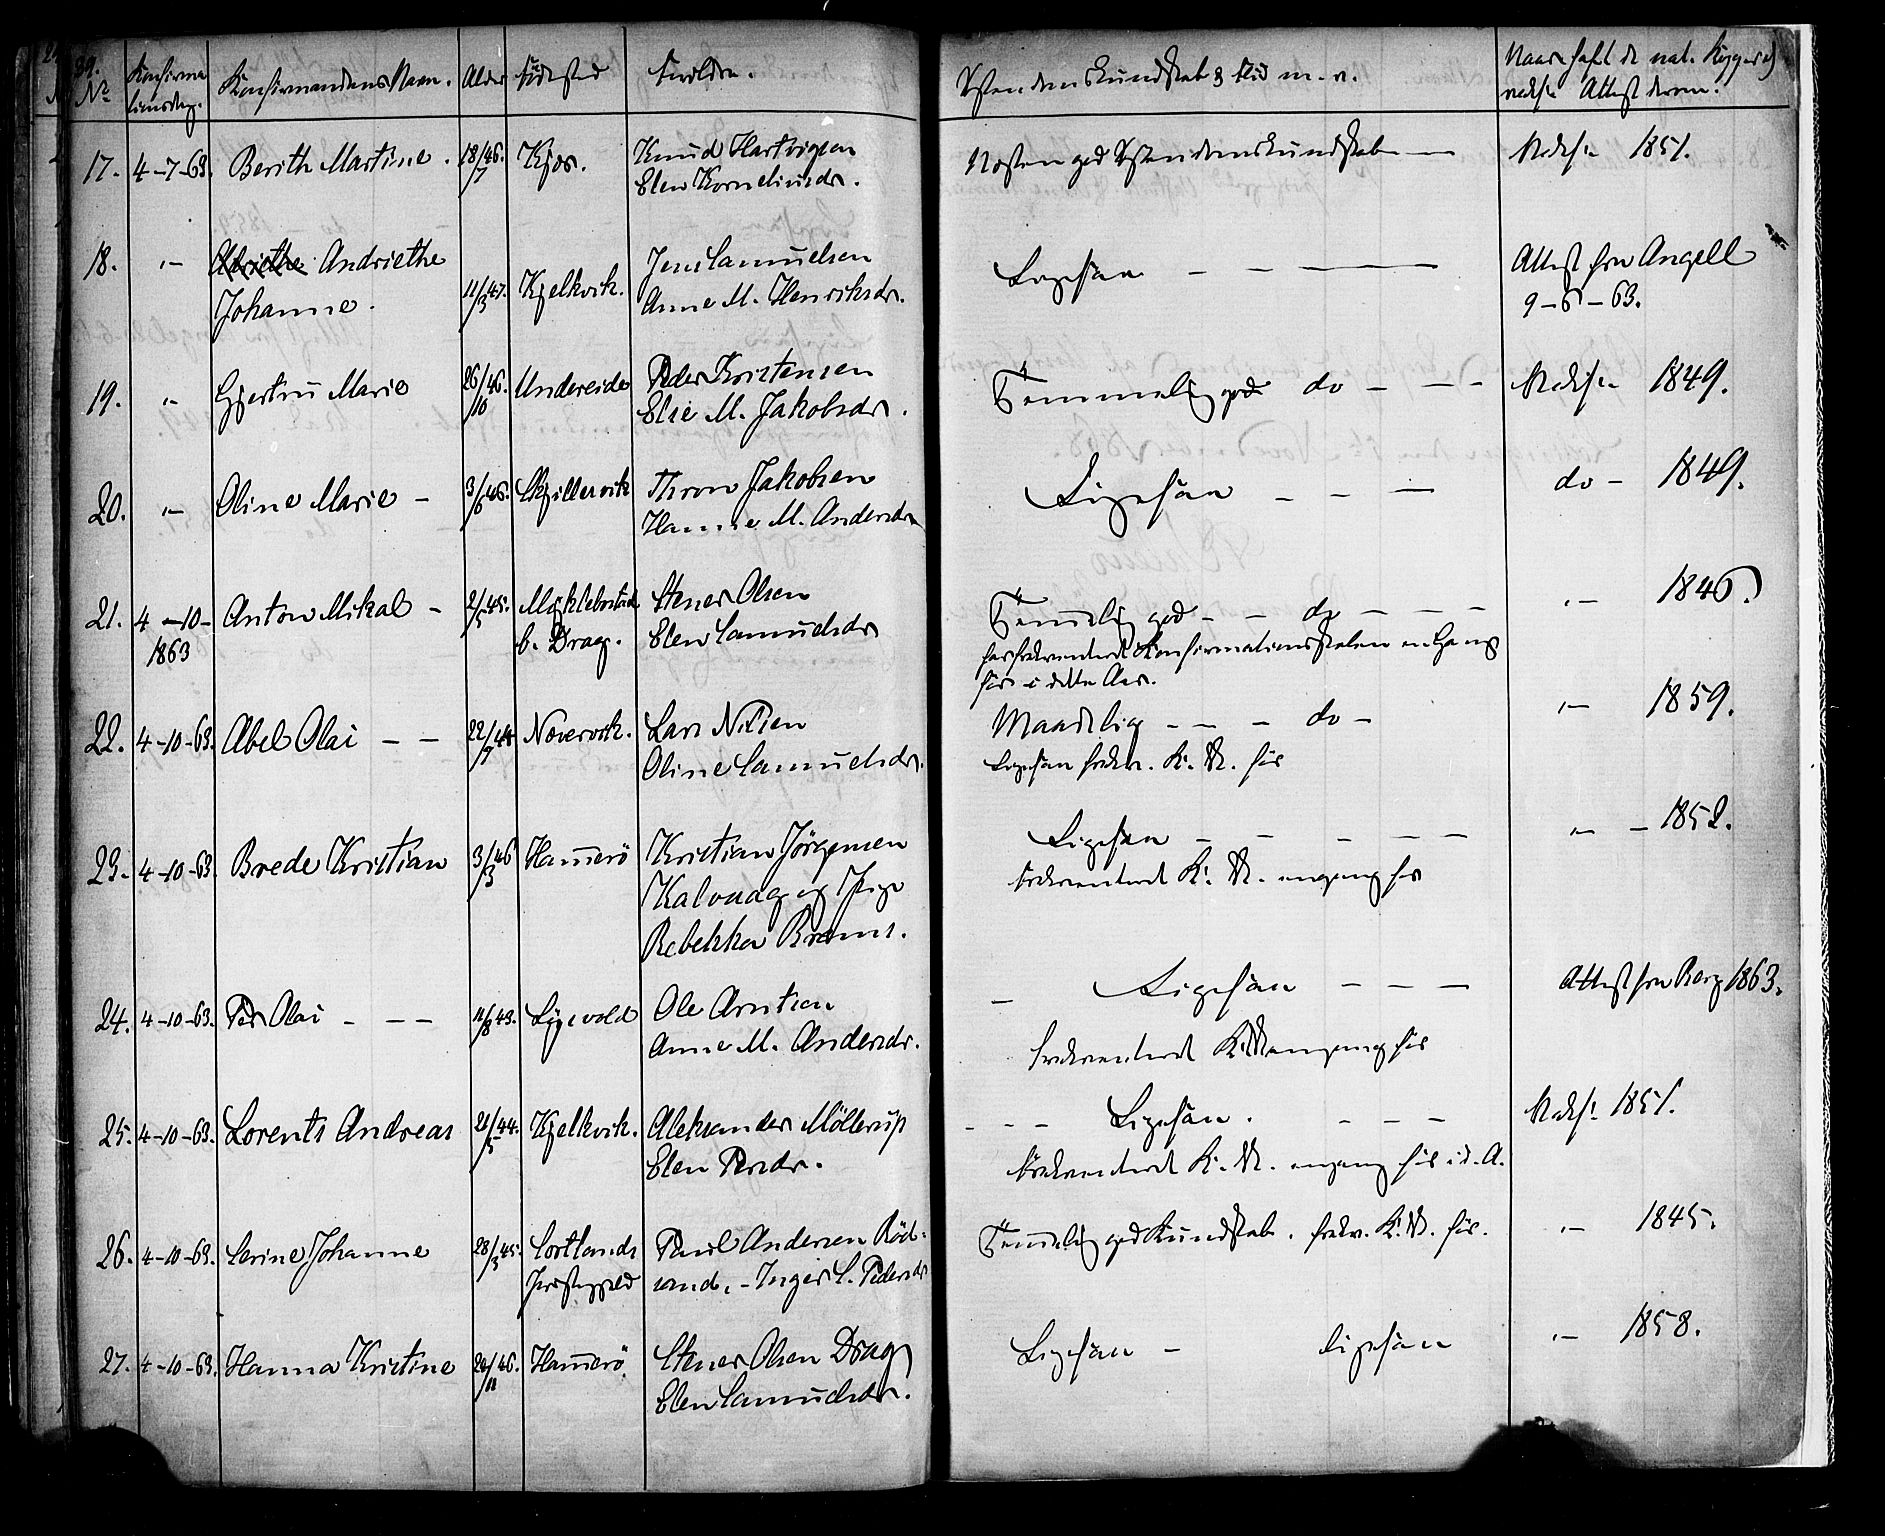 39.
No
Konfirma
tionsdag.
Konfirmandens Navn.
Alder
Födested
Forældre.
Kristendomskundskab & Flid m. v.
Naar haft de nat. Kopper ell
vacksc. Attest derom.
17. 4-7-63. Berith Martine. 18/7 46. Kjös. Knud Hartvigsen
Elen Kornelius dr.
Næsten god Kristendomskundskab — Vaksc. 1851.
18. "— Andriethe
Johanne. 11/3 47. Kjelkvik. Jens Samuelsen
Anne M. Henriksdr.
Ligesaa — — — Attest fra Angell
9-6-63.
19. "— Gjertine Marie 26/10 46. Undereide Peder Kristensen
Elie M. Jakobsdr.
Temmelig god do — — — Vaksc. 1849.
20. "— Oline Marie — 3/6 46. Skjillesvik Thron Jakobsen
Hanne M. Andersdr
Ligesaa — — — do — 1849.
21. 4-10-
1863
Anton Mikal — 2/5 45. Möklebostad
b. Drag. Stener Olsen
Elen Samuelsdr
Temmelig god — — do — — —
har frekventeret Konfirmationsskolen en Gang
för i dette Aar.
"— 1846.
22. 4-10-63. Abel Olai — — 22/7 44 Novervik. Lars Nilsen
Oline Samuelsdr.
Maadelig — — — do —
Ligesaa frekv. K. Sk. för
"— 1859.
23. 4-10-63 Brede Kristian 3/3 46 Hammerö Kristian Jörgensen
Kalvaag og Pige
Rebekka Brams.
Ligesaa — — — — —
frekventeret K. Sk. engang för
"— — 1852.
24. 4-10-63. Per Olai — — — 11/8 43. Ligevold Ole Arntsen
Anne M. Andersdr.
— Ligesaa — — —
frekventeret K. Sk engang för
Attest fra Berg 1863.
25. 4-10-63. Lorents Andreas 21/5 44. Kjelkvik. Aleksander Möllerup
Elen Persdr.
— — — Ligesaa. — — —
frekventeret K. Sk. engang för i d. A.
Vaksc. 1851.
26. 4-10-63. Serine Johanne 28/3 45. Sortlands
Præstegjeld Paul Andersen Röd-
sand, — Inger S. Pedersdr
Temmelig god Kundskab. frekv. K. Sk. för.
"— 1845.
27. 4-10-63. Hanna Kristine 20/11 46. Hammerö Stener Olsen Drag
Elen Samuelsdr.
Ligesaa — ligesaa
"— 1858.